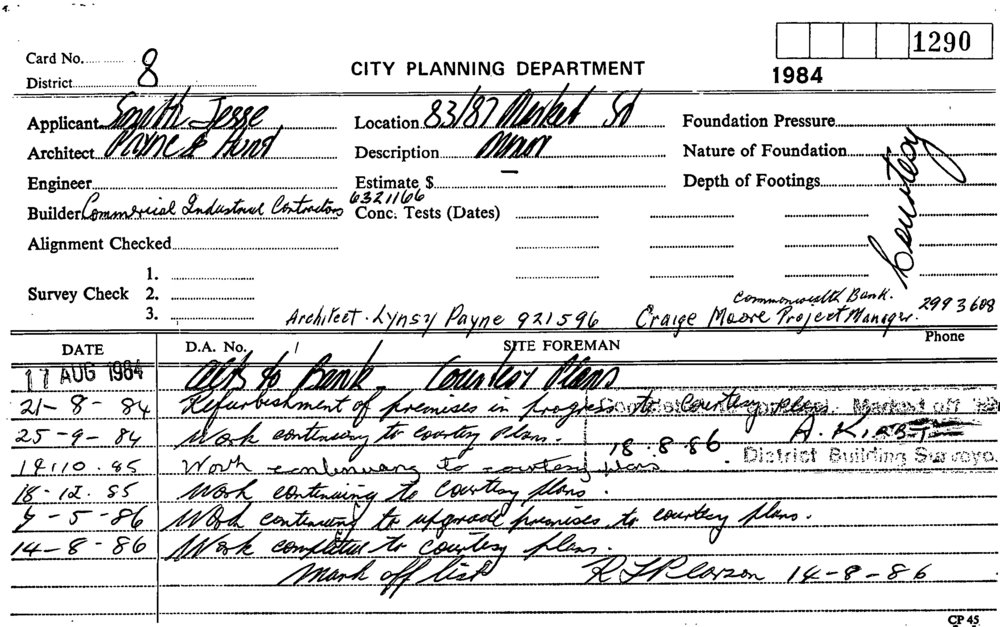 1290
Card No. 8
CITY PLANNING DEPARTMENT
1984
District
Applicant Smith Jesse
Location 83/87 Market St
Foundation Pressure
Architect Payne & Hunt
Description Minor
Nature of Foundation
Engineer
Estimate $ —
Depth of Footings
Courtesy
Builder Commercial Industrial Contractors 6321166
Conc. Tests (Dates)
Alignment Checked
1.
Survey Check 2.
3.
Commonwealth Bank.
Architect. Lynsy Payne 921596 Craige Moore Project Manager. 2993608
Phone
DATE D.A. No. SITE FOREMAN
17 AUG 1984 Alts to Bank Courtesy Plans
21-8-84 Refurbishment of premises in progress to courtesy plans.
Marked off
25-9-84 Work continuing to courtesy plans.
18.8.86 A. KIRBY
14/10.85 Work continuing to courtesy plans
District Building Surveyo
18-12.85 Work continuing to courtesy plans.
7-5-86 Work continuing to upgrade premises to courtesy plans.
14-8-86 Work completed to courtesy plans.
Mark off list 14-8-86
CP 45